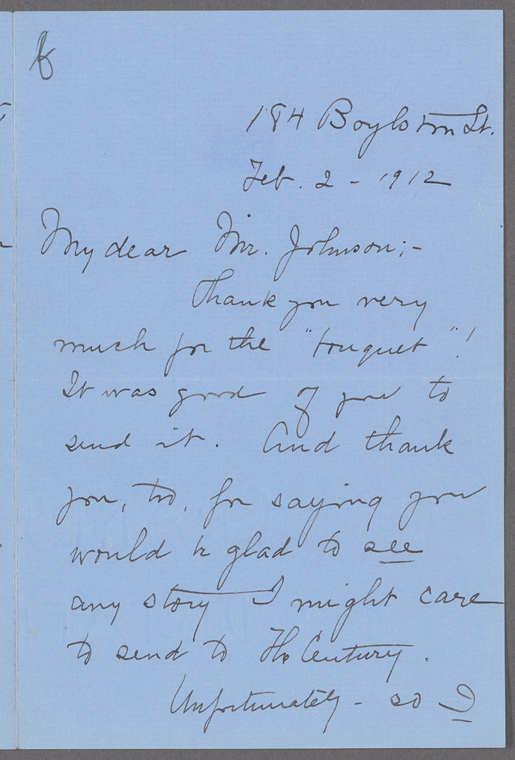 184 Boylston St.
Feb. 2 - 1912
My dear Mr. Johnson; -
Thank you very
much for the "bouquet"!
It was good of you to
send it. And thank
you, too, for saying you
would be glad to see
any story I might care
to send to The Century.
Unfortunately - so I